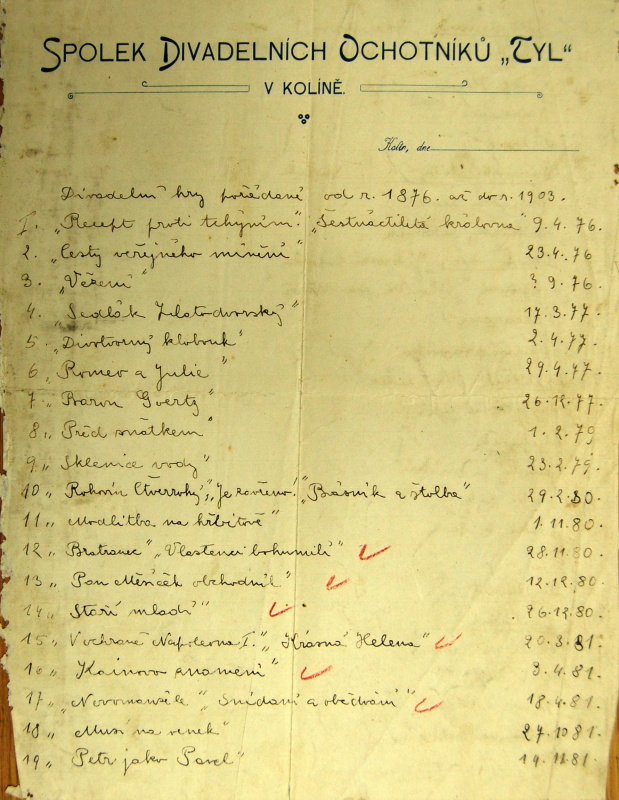 SPOLEK DIVADELNÍCH OCHOTNÍKŮ „TYL"
V KOLÍNĚ.
Kolín, dne
Divadelní hry pořádané od r. 1876. až do r. 1903.
1. „Recept proti tchýním". „Šestnáctiletá královna" 9.4.76.
2. „Cesty veřejného mínění" 23.4.76
3. „Vězení" ? 9.76.
4. „Sedlák Zlatodvorský" 17.3.77.
5. „Divotvorný klobouk" 2.4.77.
6 „Romeo a Julie" 29.4.77.
7 „Baron Goertz" 26.12.77.
8 „Před sňatkem" 1.2.79
9 „Sklenice vody" 23.2.79.
10 „Rohovín Čtverrohý", „Je zavřeno!" „Básník a štolba" 29.2.80.
11 „Modlitba na hřbitově" 1.11.80.
12 „Bratranec" „Vlastenci bohumilí" 28.11.80.
13 „Pan Měsíček obchodník" 12.12.80.
14 „Staří mladí" 26.12.80.
15 „V ochraně Napoleona I." „Krásná Helena" 20.3.81.
16 „Kainovo znamení" 3.4.81.
17 „Novomanželé" „Snídaní a obědvání" 18.4.81.
18 „Musí na venek" 27.10.81.
19 „Petr jako Pavel" 19.11.81.